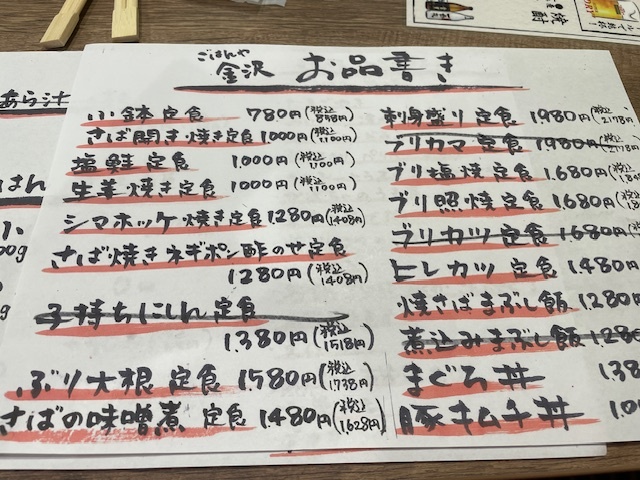 ごはんや
金沢 お品書き
小鉢定食 780円(税込858円)
さば開き焼き定食 1000円(税込1100円)
塩鮭定食 1,000円(税込1,100円)
生姜焼き定食 1000円(税込1100円)
シマホッケ焼き定食 1280円(税込1408円)
さば焼きネギポン酢のせ定食
1280円(税込1408円)
子持ちにしん定食
1,380円(税込1,518円)
ぶり大根定食 1,580円(税込1,738円)
さばの味噌煮定食 1,480円(税込1,628円)
刺身盛り定食 1980円(税込2,178円)
ブリカマ定食 1980円(税込2,178円)
ブリ塩焼定食 1,680円(税込
ブリ照焼定食 1,680円(税込
ブリカツ定食 1,680円(税込
ヒレカツ定食 1,480円
焼さばまぶし飯 1,280円
煮込みまぶし飯 1280
まぐろ丼 1,38
豚キムチ丼
あら汁
ごはん
焼酎